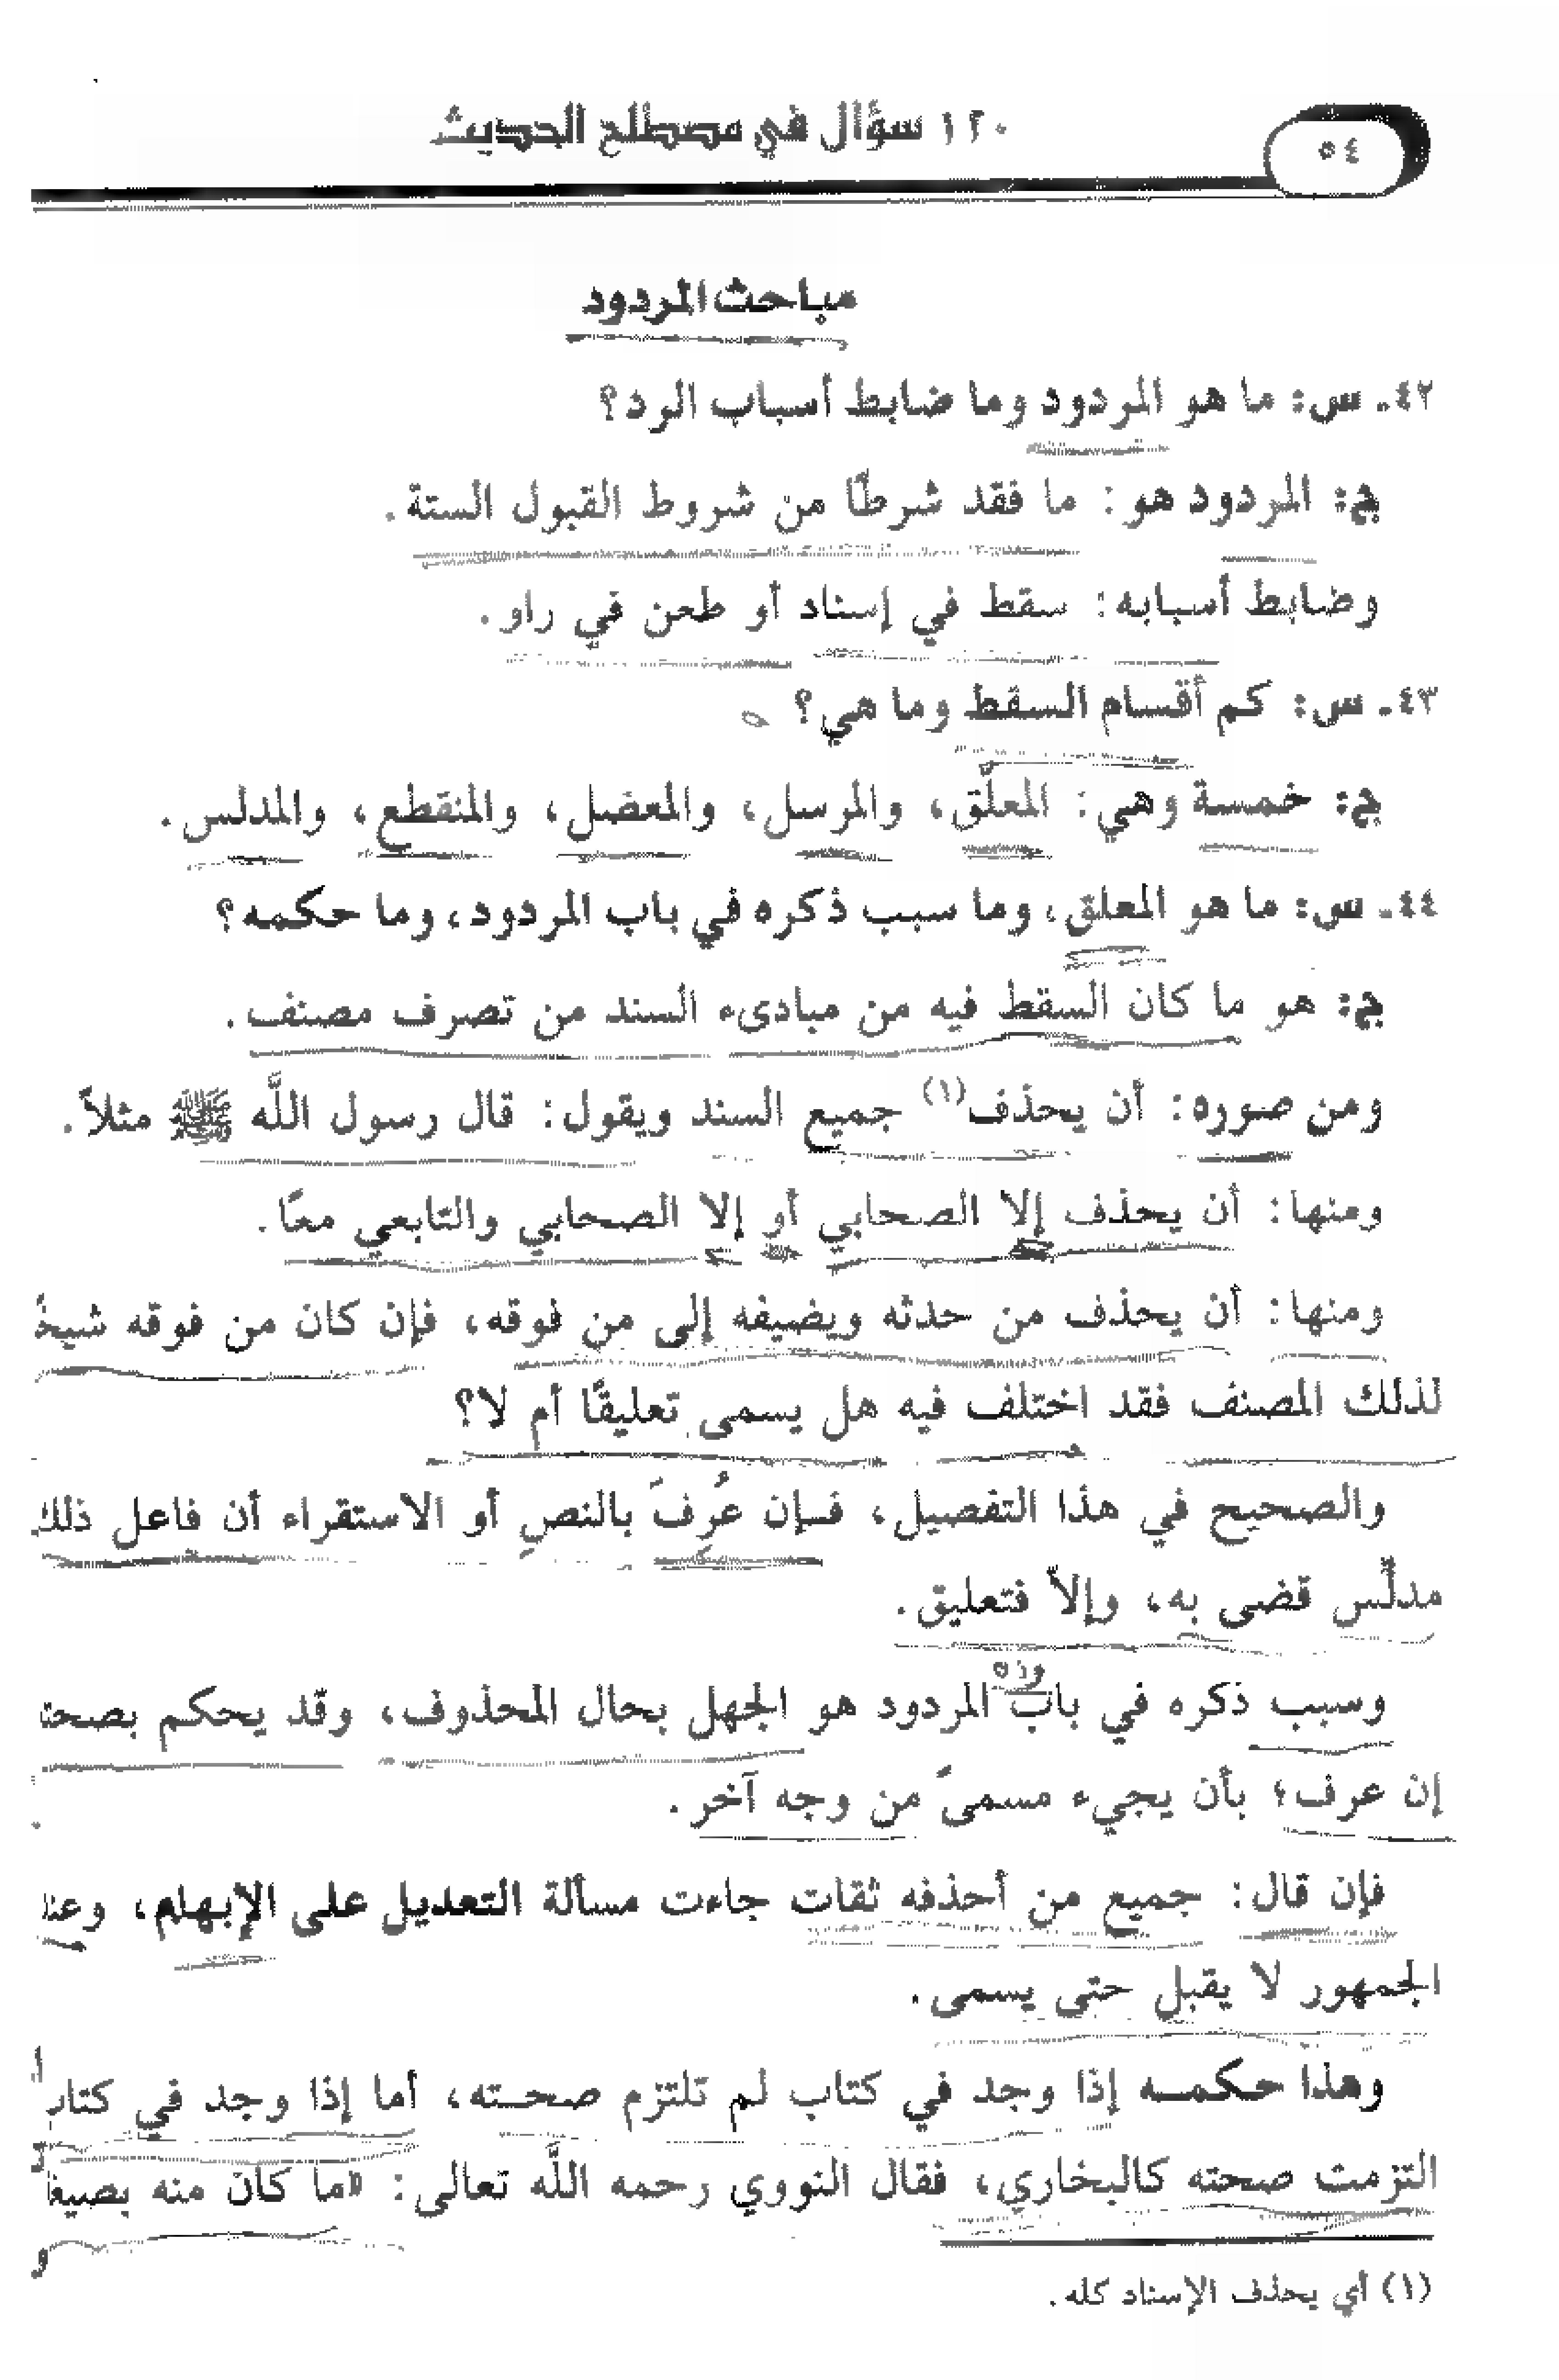 ٥٤
١٢٠ سؤال في مصطلح الحديث
مباحث المردود
٤٢ـ س: ما هو المردود وما ضابط أسباب الرد؟
ج: المردود هو: ما فقد شرطًا من شروط القبول الستة.
وضابط أسبابه: سقط في إسناد أو طعن في راو.
٤٣ـ س: كم أقسام السقط وما هي؟
ج: خمسة وهي: المعلَّق، والمرسل، والمعضل، والمنقطع، والمدلس.
٤٤ـ س: ما هو المعلق، وما سبب ذكره في باب المردود، وما حكمه؟
ج: هو ما كان السقط فيه من مبادىء السند من تصرف مصنف.
ومن صوره: أن يحذف(١) جميع السند ويقول: قال رسول اللَّه ﷺ مثلاً.
ومنها: أن يحذف إلا الصحابي أو إلا الصحابي والتابعي معًا.
ومنها: أن يحذف من حدثه ويضيفه إلى من فوقه، فإن كان من فوقه شيخً
لذلك المصنف فقد اختلف فيه هل يسمى تعليقًا أم لا؟
والصحيح في هذا التفصيل، فإن عُرِفَ بالنصِ أو الاستقراء أن فاعل ذلك
مدلِّس قضى به، وإلاَّ فتعليق.
وسبب ذكره في باب المردود هو الجهل بحال المحذوف، وقد يحكم بصحت
إن عرف؛ بأن يجيء مسمىً من وجه آخر.
فإن قال: جميع من أحذفه ثقات جاءت مسألة التعديل على الإبهام، وعند
الجمهور لا يقبل حتى يسمى.
وهذا حكمه إذا وجد في كتاب لم تلتزم صحته، أما إذا وجد في كتاب
التزمت صحته كالبخاري، فقال النووي رحمه اللَّه تعالى: «ما كان منه بصيغ
(١) أي يحذف الإسناد كله.